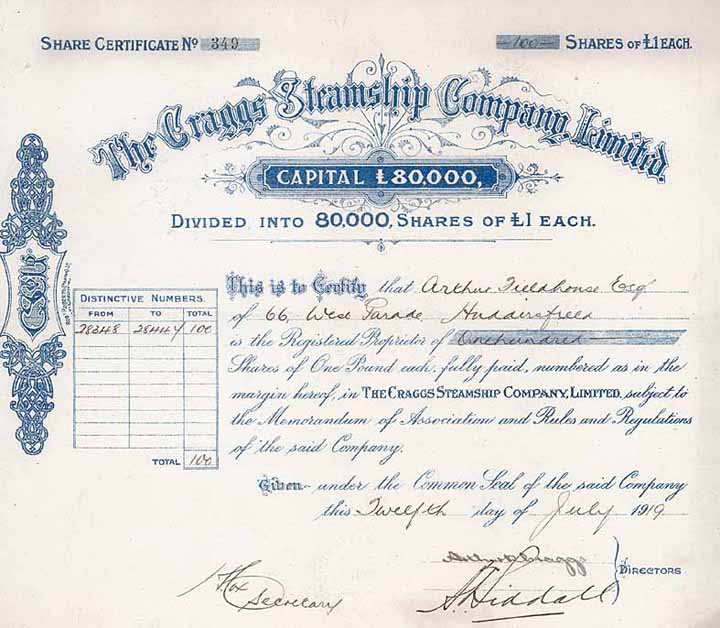 SHARE CERTIFICATE No 349
100 SHARES OF £1 EACH.
The Craggs Steamship Company, Limited.
CAPITAL £80,000,
DIVIDED INTO 80,000, SHARES OF £1 EACH.
DISTINCTIVE NUMBERS.
FROM TO TOTAL
28348 28447 100
TOTAL 100
This is to Certify that Arthur Fieldhouse Esqr
of 66, West Parade, Huddersfield
is the Registered Proprietor of One hundred
Shares of One Pound each, fully paid, numbered as in the
margin hereof, in THE CRAGGS STEAMSHIP COMPANY, LIMITED, subject to
the Memorandum of Association and Rules and Regulations
of the said Company.
Given under the Common Seal of the said Company
this Twelfth day of July 1919
Craggs
DIRECTORS
Secretary